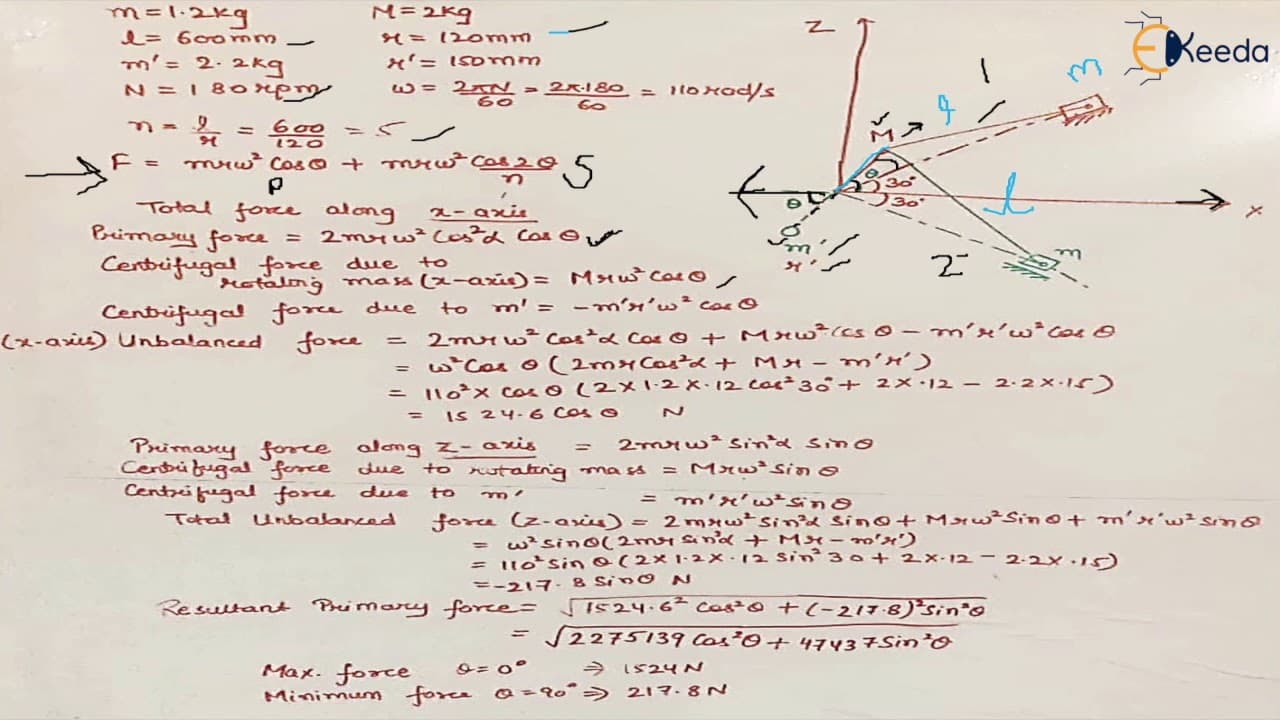 m = 1.2kg M = 2kg
l = 600mm r = 120mm
m' = 2.2kg r' = 150mm
N = 180rpm ω = 2πN/60 = 2π.180/60 = 110rad/s
n = l/r = 600/120 = 5
F = mrω² Cosθ + mrω² Cos2θ/n S
P
Total force along x-axis
Primary force = 2mrω² Cos²α Cosθ
Centrifugal force due to
rotating mass (x-axis) = Mrω² cosθ
Centrifugal force due to m' = -m'r'ω² cosθ
(x-axis) Unbalanced force = 2mrω² cos²α cosθ + Mrω² cosθ - m'r'ω² cosθ
= ω² Cosθ (2mr Cos²α + Mr - m'r')
= 110² x cosθ (2x1.2x.12 cos²30° + 2x.12 - 2.2x.15)
= 1524.6 cosθ N
Primary force along z-axis = 2mrω² sin²α sinθ
Centrifugal force due to rotating mass = Mrω² sinθ
Centrifugal force due to m' = m'r'ω² sinθ
Total Unbalanced force (z-axis) = 2mrω² sin²α sinθ + Mrω² sinθ + m'r'ω² sinθ
= ω² sinθ (2mr sin²α + Mr - m'r')
= 110² sinθ (2x1.2x.12 sin²30 + 2x.12 - 2.2x.15)
= -217.8 sinθ N
Resultant Primary force = √1524.6² cos²θ + (-217.8)² sin²θ
= √2275139 cos²θ + 47437 sin²θ
Max. force θ = 0° ⇒ 1524N
Minimum force θ = 90° ⇒ 217.8N
Z
m
1
M
θ
30°
30°
l
x
θ
m'
r'
2
m
Keeda